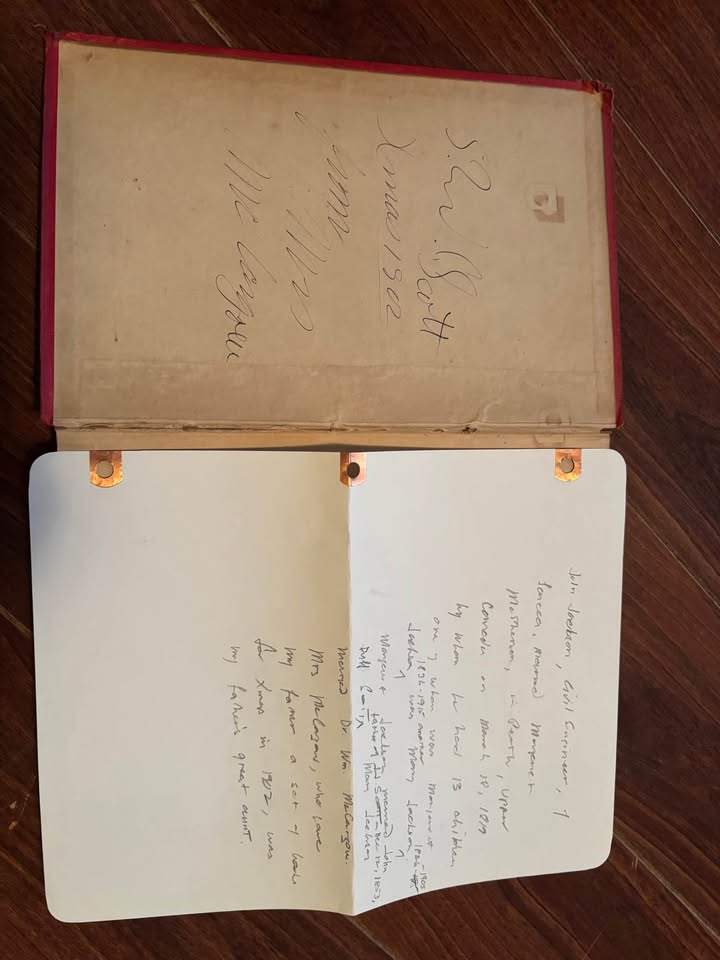 S. W. Scott
Xmas 1902
from
Mrs
McCargow
John Jackson, Civil Engineer, of
Seneca, married Margaret
Matheson, in Perth, Upper
Canada on March 18, 1819
by whom he had 13 children
one of whom was Margaret
Jackson, 1834-1915 another
was Mary Jackson, 1826-1905
Margaret Jackson married John
Scott
Mary Jackson
married Dr. Wm. McCargow.
Mrs McCargow, who gave
my father a set of books
for Xmas in 1902, was
my father's great aunt.